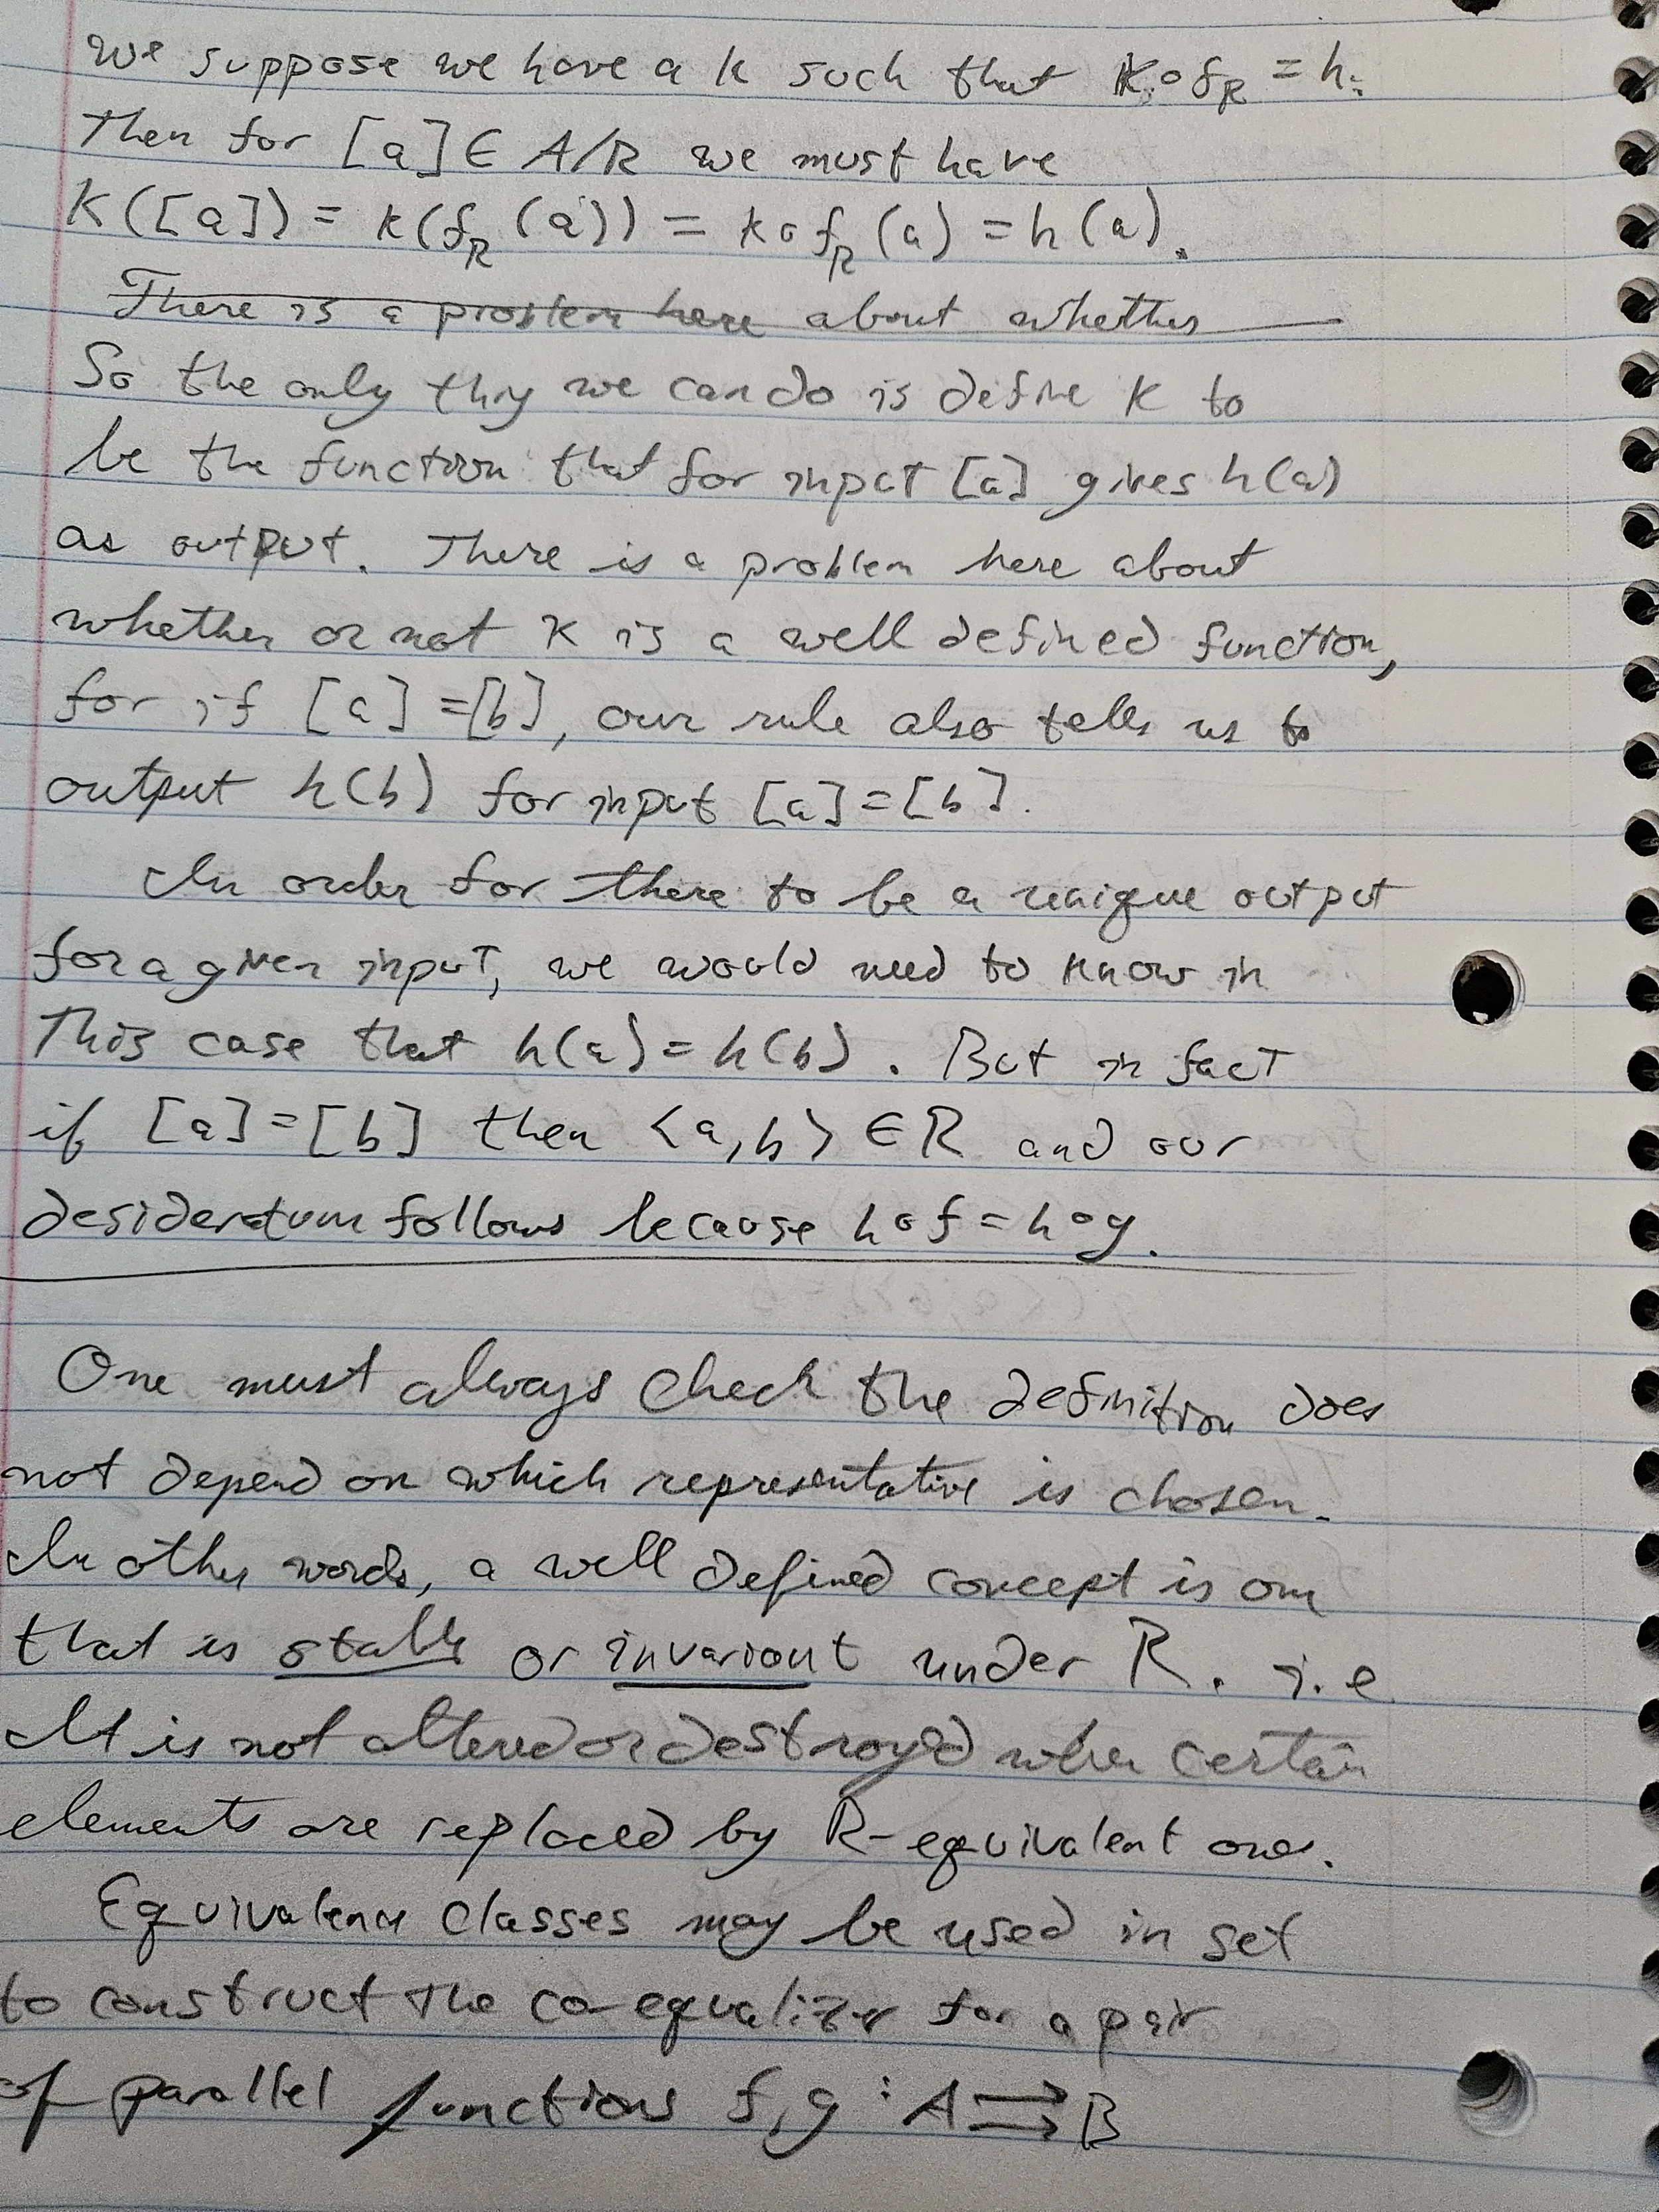 We suppose we have a k such that k∘f_R = h.
Then for [a] ∈ A/R we must have
k([a]) = k(f_R(a)) = k∘f_R(a) = h(a).
There is a problem here about whether
So the only thing we can do is define k to
be the function that for input [a] gives h(a)
as output. There is a problem here about
whether or not k is a well defined function,
for if [a] = [b], our rule also tells us to
output h(b) for input [a] = [b].
In order for there to be a unique output
for a given input, we would need to know in
this case that h(a) = h(b). But in fact
if [a] = [b] then <a,b> ∈ R and our
desideratum follows because h∘f = h∘g.
One must always check the definition does
not depend on which representative is chosen.
In other words, a well defined concept is one
that is stable or invariant under R. i.e
It is not altered or destroyed when certain
elements are replaced by R-equivalent ones.
Equivalence classes may be used in set
to construct the co-equalizer for a pair
of parallel functions f,g : A ⇉ B